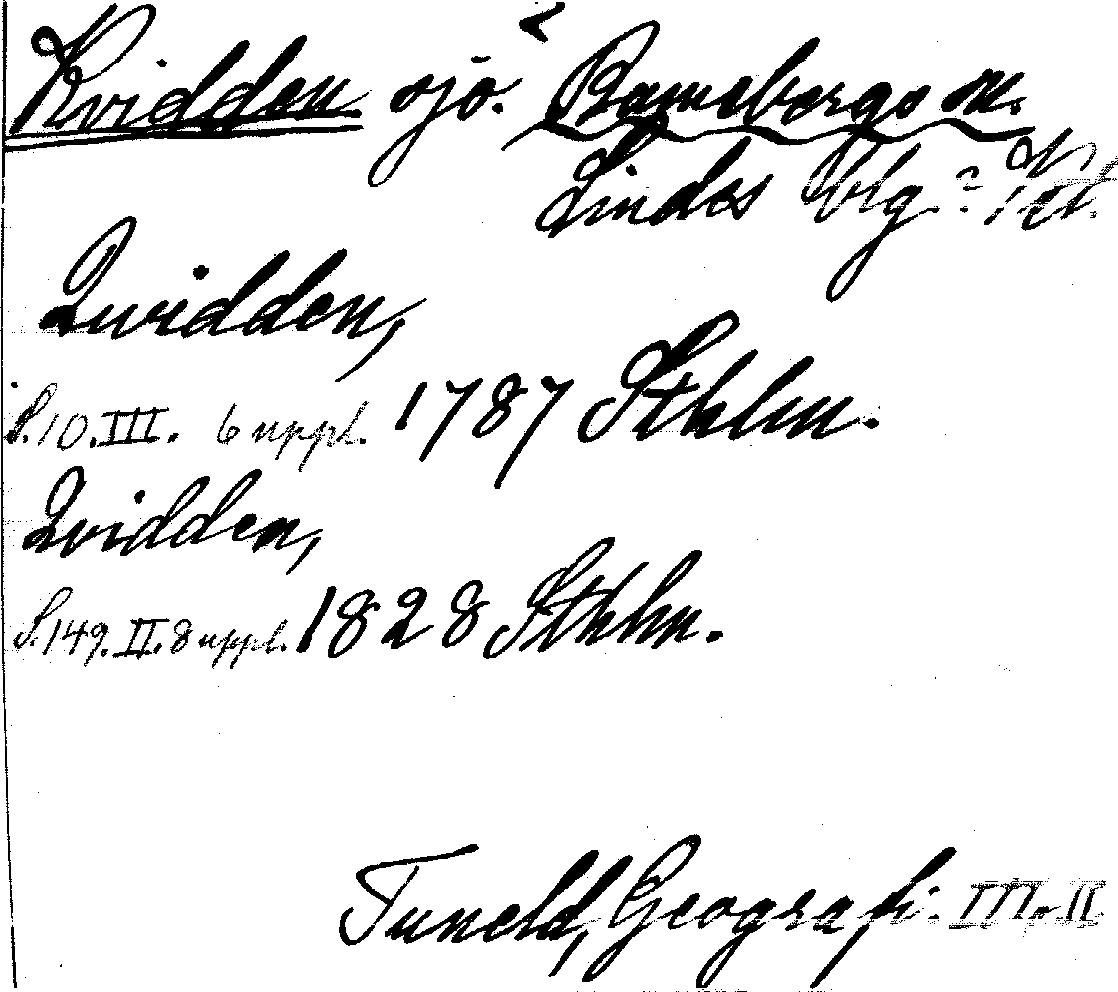 Kvidden sjö. Ramsbergs sn.
Lindes blg
Quvidden,
S. 10. III. 6 uppl. 1787 Sthlm.
Qvidden,
S. 149. II. 8 uppl. 1828 Sthlm.
Tuneld, Geografi. III. II